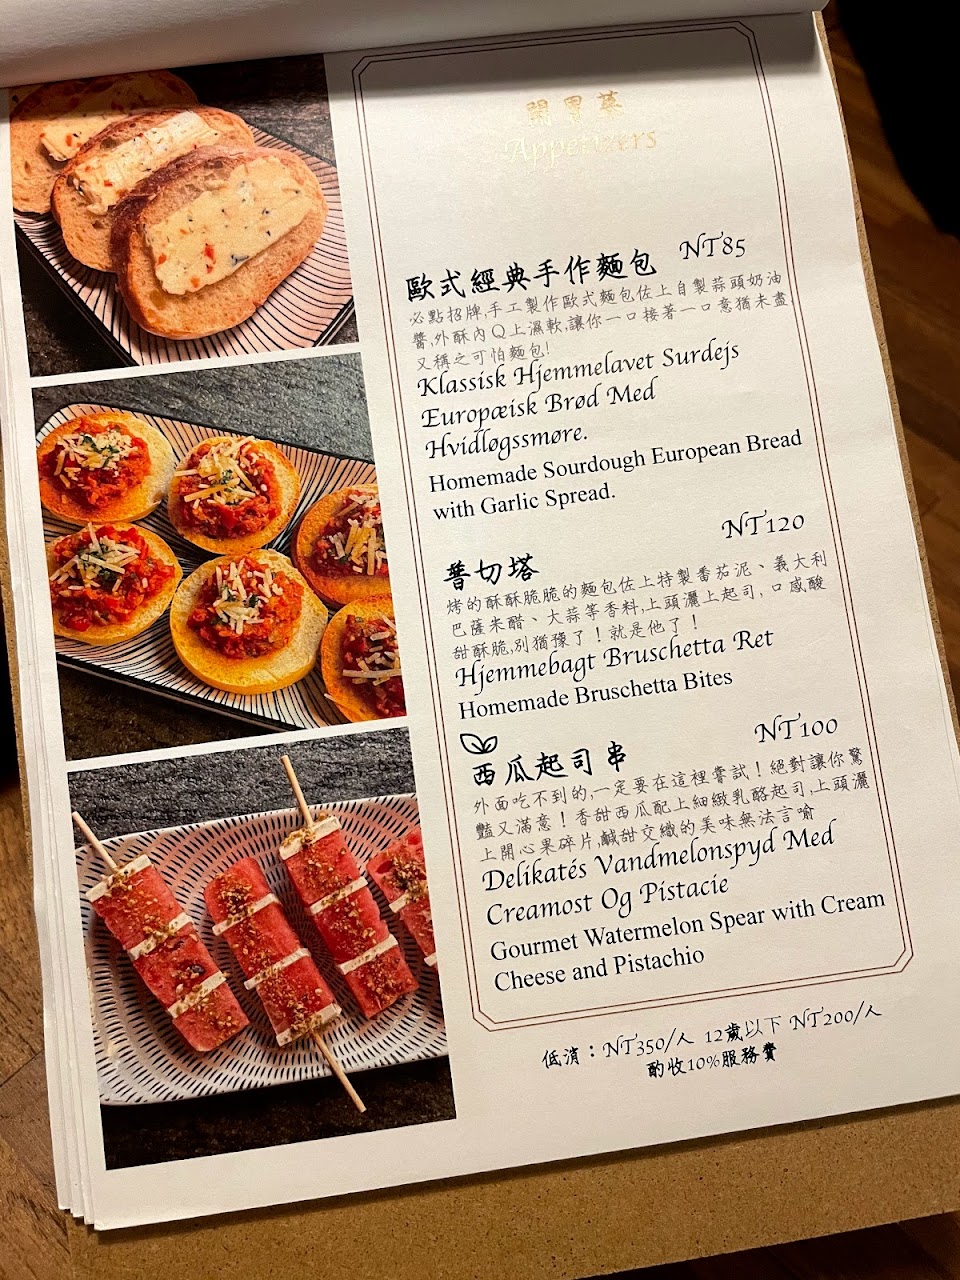 開胃菜
Appetizers
歐式經典手作麵包 NT85
必點招牌,手工製作歐式麵包佐上自製蒜頭奶油
醬,外酥內Q上濕軟,讓你一口接著一口意猶未盡
又稱之可怕麵包!
Klassisk Hjemmelavet Surdejs
Europæisk Brød Med
Hvidløgssmøre.
Homemade Sourdough European Bread
with Garlic Spread.
NT120
普切塔
烤的酥酥脆脆的麵包佐上特製番茄泥、義大利
巴薩米醋、大蒜等香料,上頭灑上起司, 口感酸
甜酥脆,別猶豫了!就是他了!
Hjemmebagt Bruschetta Ret
Homemade Bruschetta Bites
NT100
西瓜起司串
外面吃不到的,一定要在這裡嘗試!絕對讓你驚
豔又滿意!香甜西瓜配上細緻乳酪起司,上頭灑
上開心果碎片,鹹甜交織的美味無法言喻
Delikatés Vandmelonspyd Med
Creamost Og Pistacie
Gourmet Watermelon Spear with Cream
Cheese and Pistachio
低消:NT350/人 12歲以下 NT200/人
酌收10%服務費